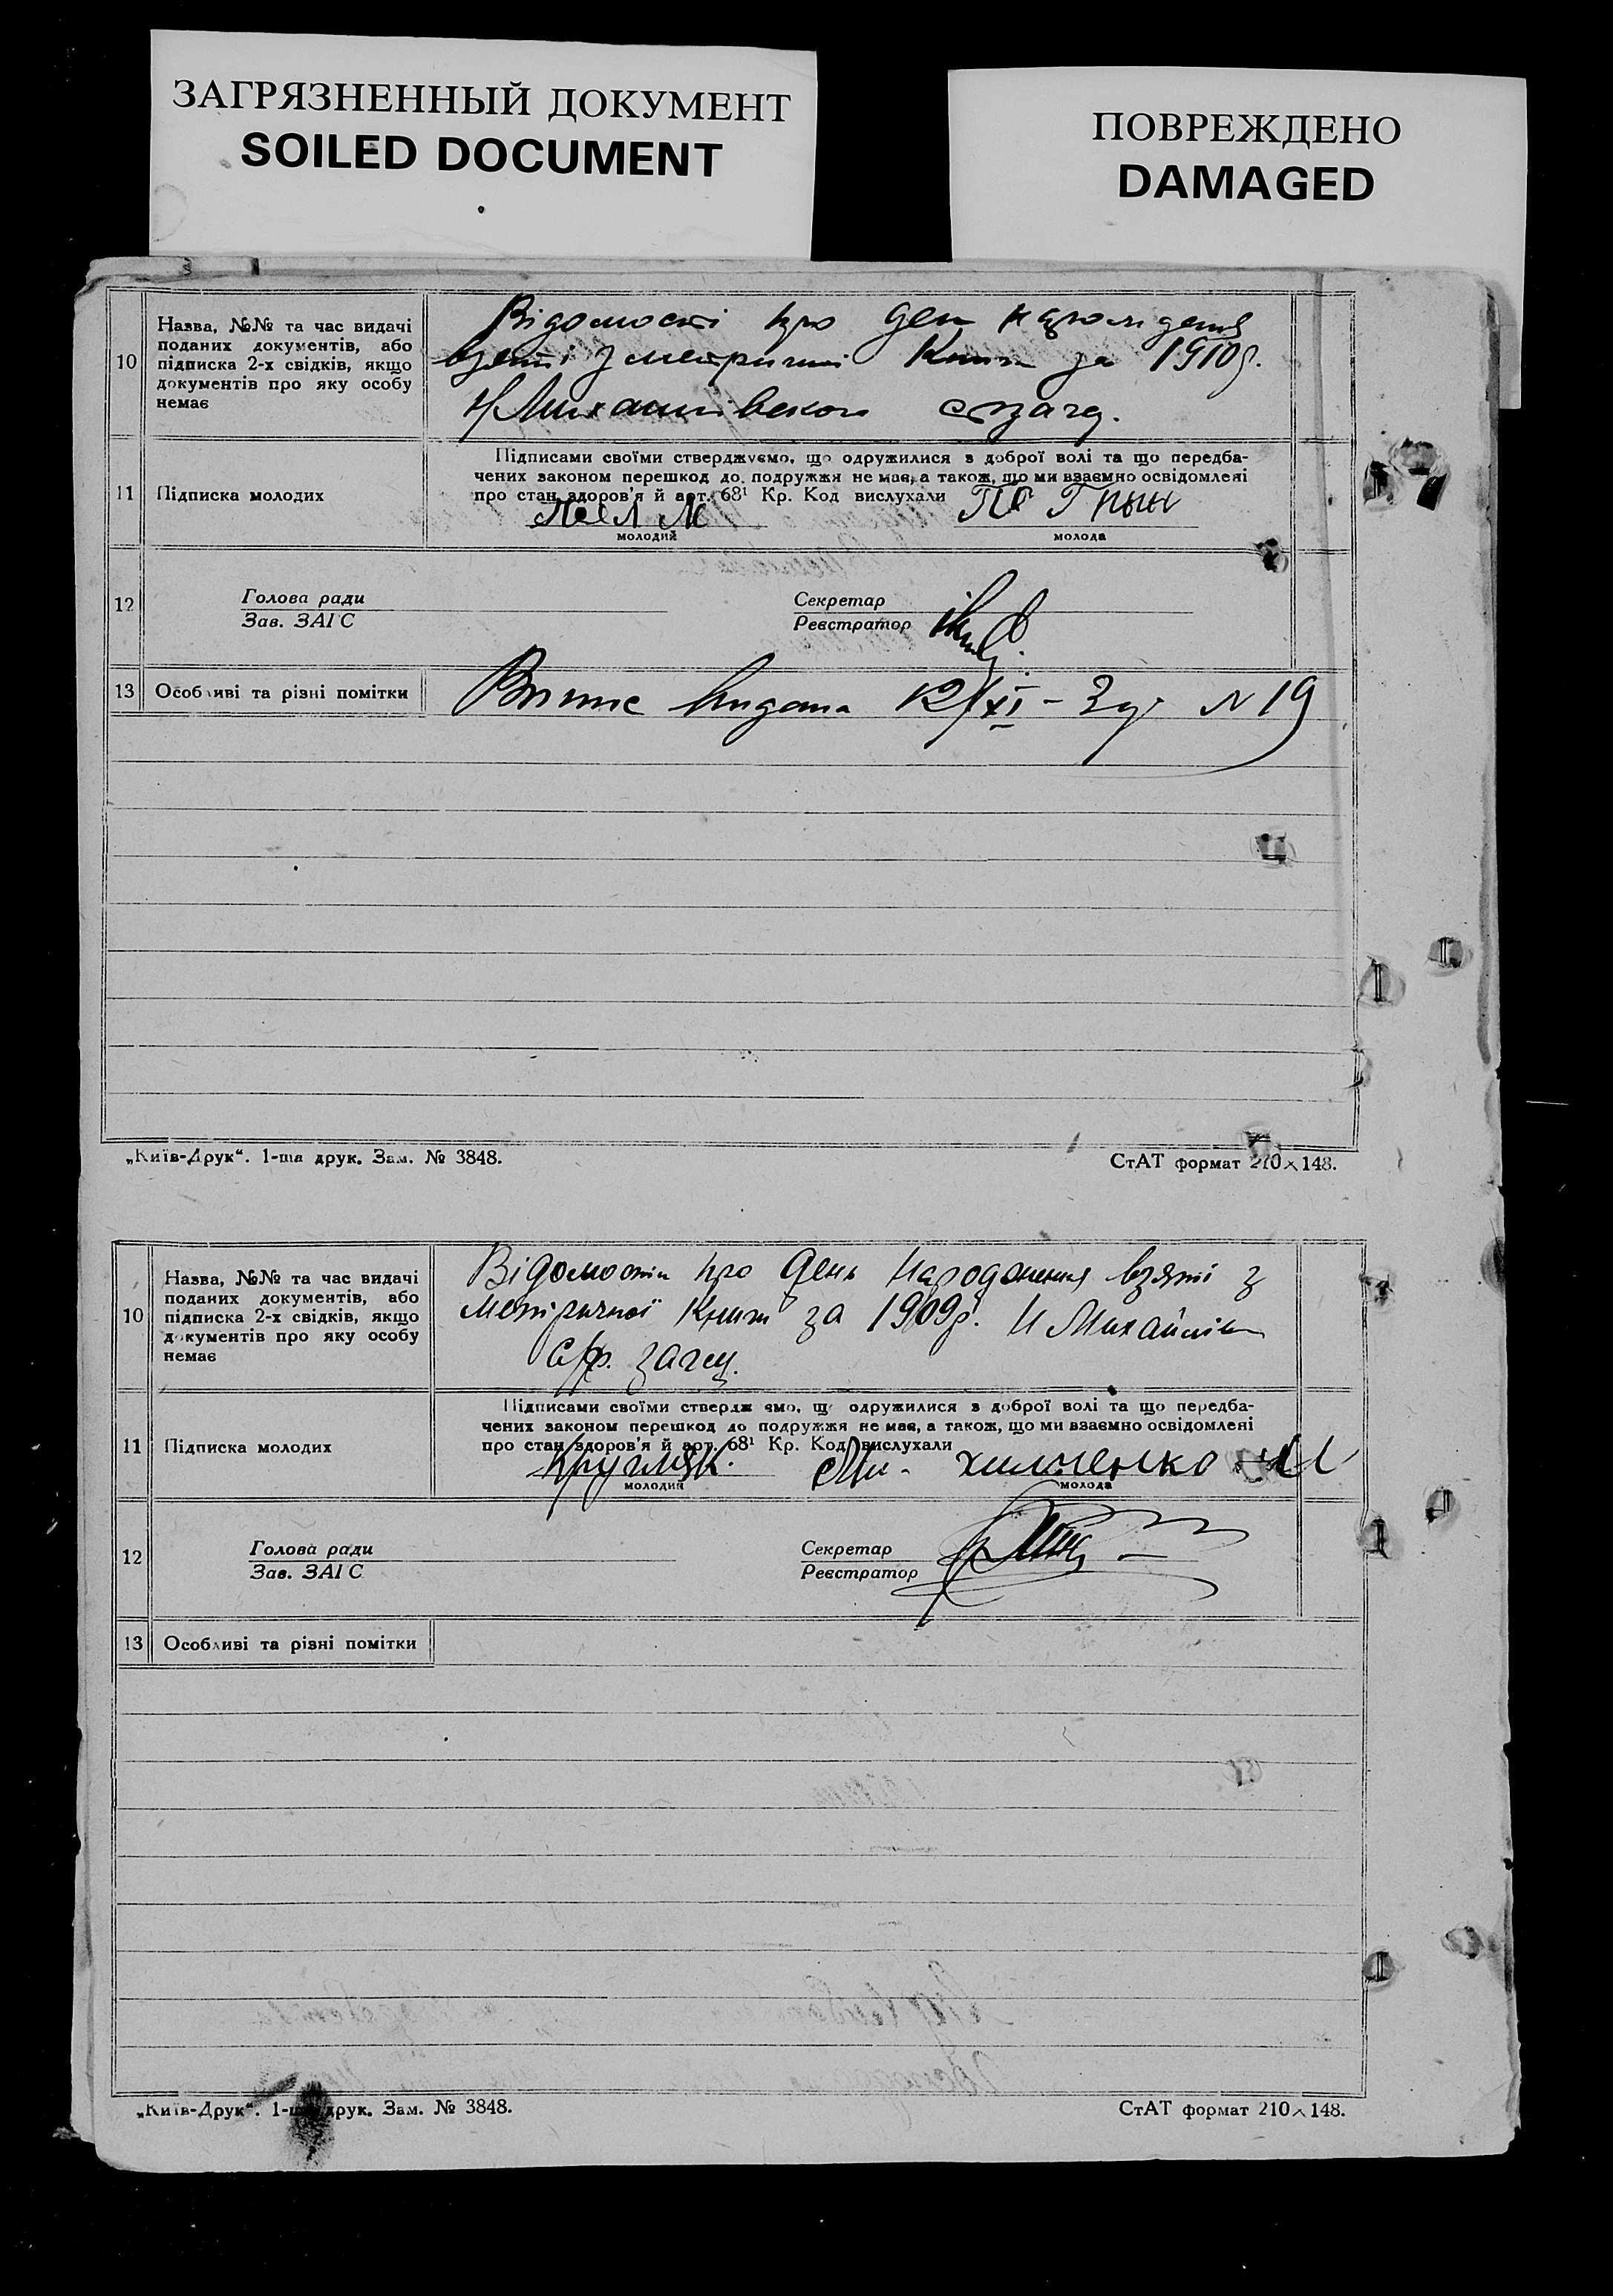 ЗАГРЯЗНЕННЫЙ ДОКУМЕНТ
SOILED DOCUMENT
ПОВРЕЖДЕНО
DAMAGED
10
Назва, №№ та час видачі
поданих документів, або
підписка 2-х свідків, якщо
документів про яку особу
немає
Відомості про ден народження
взяті з метричної книги за 1910р.
11
Підписка молодих
Підписами своїми стверджуємо, що одружилися з доброї волі та що передба-
чених законом перешкод до подружжя не має, а також, що ми взаємно освідомлені
про стан здоров'я й арт. 68¹ Кр. Код вислухали
молодий
молода
12
Голова ради
Зав. ЗАГС
Секретар
Реєстратор
13
Особливі та різні помітки
видана 12/XI - № 19
„Київ-Друк“. 1-ша друк. Зам. № 3848.
СтАТ формат 210×148.
10
Назва, №№ та час видачі
поданих документів, або
підписка 2-х свідків, якщо
документів про яку особу
немає
Відомости про день народження взяті з
метричної книги за 1909р. Н Михайлів
11
Підписка молодих
Підписами своїми стверджуємо, що одружилися з доброї волі та що передба-
чених законом перешкод до подружжя не має, а також, що ми взаємно освідомлені
про стан здоров'я й арт. 68¹ Кр. Код вислухали
Кругляк.
молодий
молода
12
Голова ради
Зав. ЗАГС
Секретар
Реєстратор
13
Особливі та різні помітки
„Київ-Друк“. 1-ша друк. Зам. № 3848.
СтАТ формат 210×148.